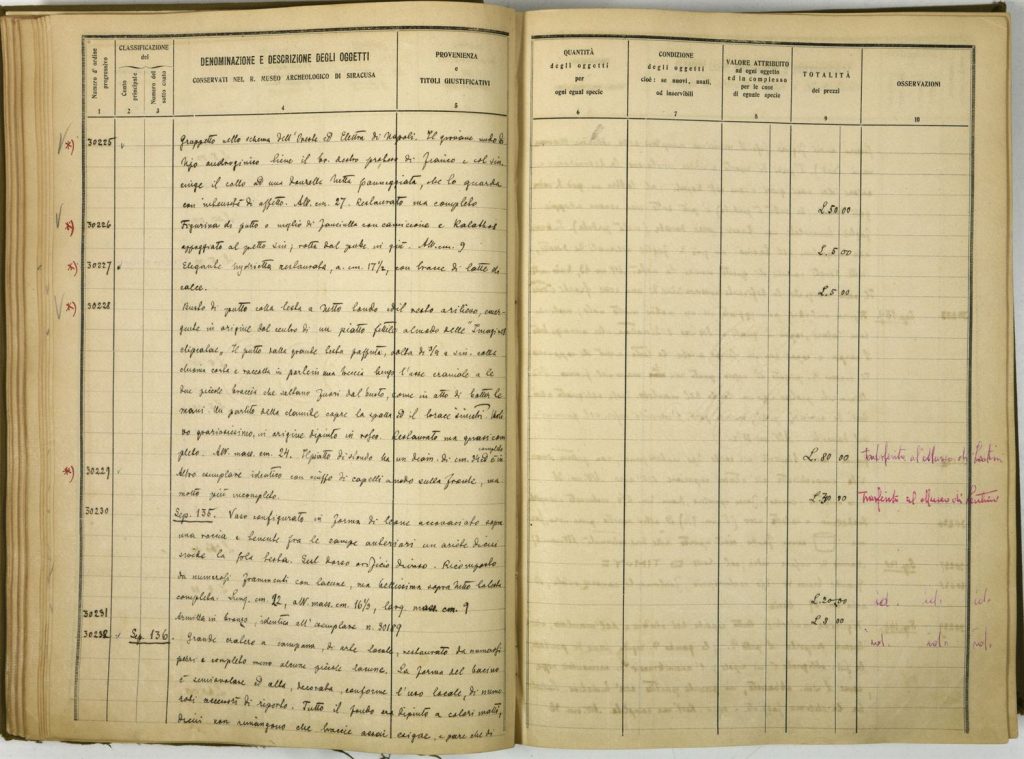 Numero d'ordine progressivo
CLASSIFICAZIONE
del
Conto principale
Numero del sotto conto
DENOMINAZIONE E DESCRIZIONE DEGLI OGGETTI
CONSERVATI NEL R. MUSEO ARCHEOLOGICO DI SIRACUSA
PROVENIENZA
E
TITOLI GIUSTIFICATIVI
QUANTITÀ
degli oggetti
per
ogni egual specie
CONDIZIONE
degli oggetti
cioè: se nuovi, usati,
od inservibili
VALORE ATTRIBUITO
ad ogni oggetto
ed in complesso
per le cose
di eguale specie
TOTALITÀ
dei prezzi
OSSERVAZIONI
1 2 3 4 5 6 7 8 9 10
*) 30225 Gruppetto nello schema dell'Oreste ed Elettra di Napoli. Il giovane nudo
androginico tiene il br. destro di fianco e col sin.
cinge il collo ad una donzella tutta panneggiata, che lo guarda
con intensità di affetto. Alt. cm. 27. Restaurato ma completo
L. 50 00
*) 30226 Figurina di putto o meglio di fanciulla con camicione e Kalathos
appoggiato al petto sin; rotta dal in giù. Alt. cm. 9
L. 5 00
*) 30227 Elegante restaurata, a. cm. 17½, con tracce di latte di
calce.
L. 5 00
*) 30228 Busto di putto colla testa a tutto tondo ed il resto a rilievo, emer-
gente in origine dal centro di un piatto fittile a modo delle "Imagines
clipeatae„ Il putto dalla grande testa paffuta, volta di ¾ a sin. colla
chioma corta e raccolta in parte in una treccia lungo l'asse craniale a le
due piccole braccia che saltano fuori dal busto, come in atto di batter le
mani. Un partito della clamide copre la spalla ed il torace sinistri.
graziosissimo, in origine dipinto in roseo. Restaurato ma quasi com
pleto. Alt. mass. cm. 24. Il piatto di sfondo ha un diam. di cm. 34
completo
L. 80 00 Trasferito al Museo di Lentini
*) 30229 Altro esemplare identico con ciuffo di capelli a nodo sulla fronte, ma
molto più incompleto.
L. 30 00 Trasferito al Museo di Lentini
30230 Sep. 135. Vaso configurato in forma di leone accovacciato sopra
una roccia e tenente fra le zampe anteriori un ariete di cui
la sola testa. Sul dorso orifizio Ricomposto
da numerosi frammenti con lacune, ma bellissima sopra tutto la testa
completa. Lung. cm. 22, alt. mass. cm. 16½, larg. mass. cm. 9
L. 20.00 id. id. id.
30231 Armilla in bronzo, identica all'esemplare n. 30189
L. 3 00
30232 Sep. 136. Grande cratere a campana, di arte locale, restaurato da numerosi
pezzi e completo meno alcune piccole lacune. La forma del bacino
è semiovolare ed alta, decorata, conforme l'uso locale, di nume
rosi accessori di riporto. Tutto il fondo era dipinto a colori matti,
di cui non rimangono che traccie assai esigue, e pare che di
id. id. id.